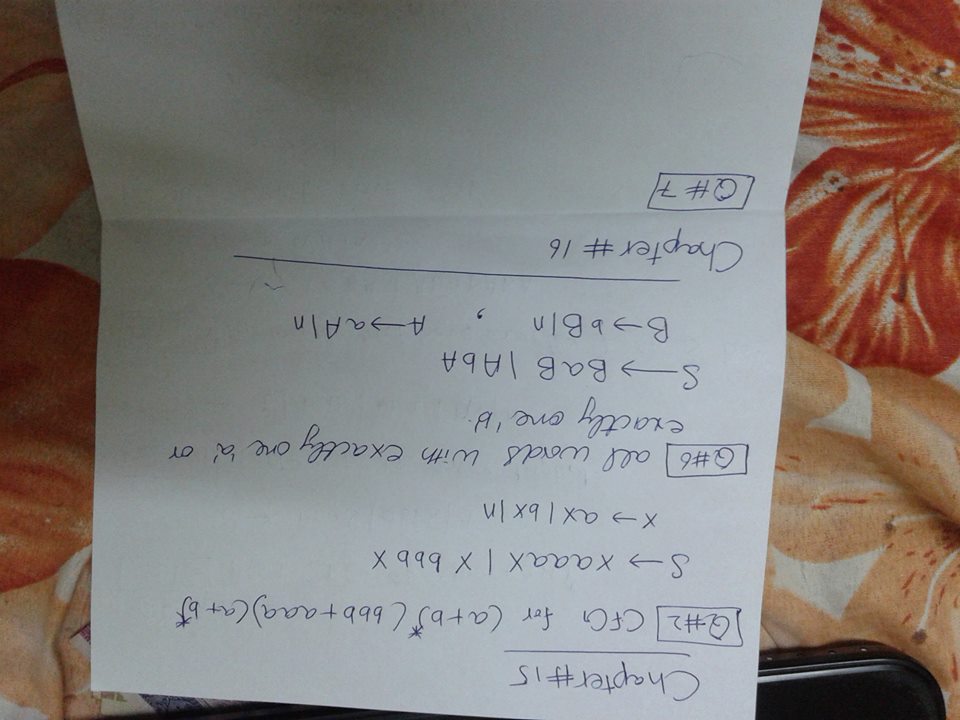 Chapter#15
Q#2 CFG for (a+b)*(bbb+aaa)(a+b)*
S → XaaaX | X bbb X
X → aX | bX | n
Q#6 all words with exactly one 'a' or
exactly one 'b'.
S → BaB | AbA
B → bB | n , A → aA | n
Chapter # 16
Q# 7